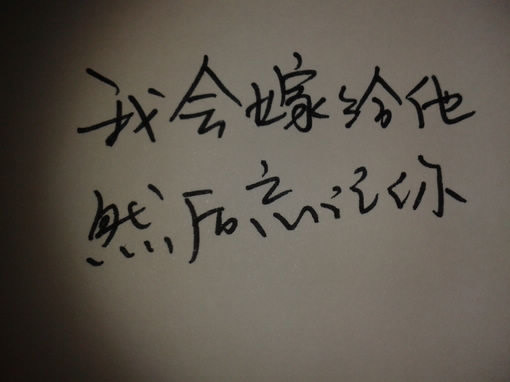 我会嫁给他
然后忘记你